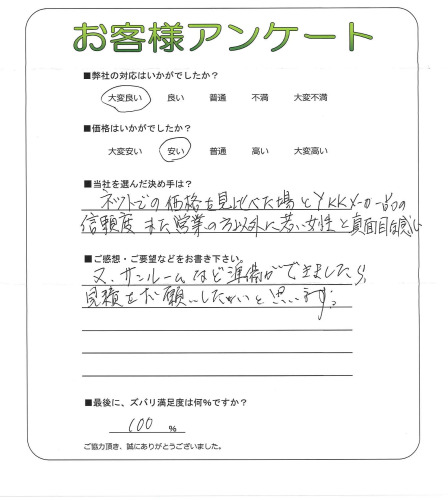 お客様アンケート
■弊社の対応はいかがでしたか?
大変良い 良い 普通 不満 大変不満
■価格はいかがでしたか?
大変安い 安い 普通 高い 大変高い
■当社を選んだ決め手は?
ネットでの価格を見比べた場とYKKメーカー品の
信頼度 また営業の方以外に若い女性と真面目な感じ
■ご感想・ご要望などをお書き下さい。
又、サンルームなど準備ができましたら、
見積をお願いしたいと思います。
■最後に、ズバリ満足度は何%ですか?
100 %
ご協力頂き、誠にありがとうございました。